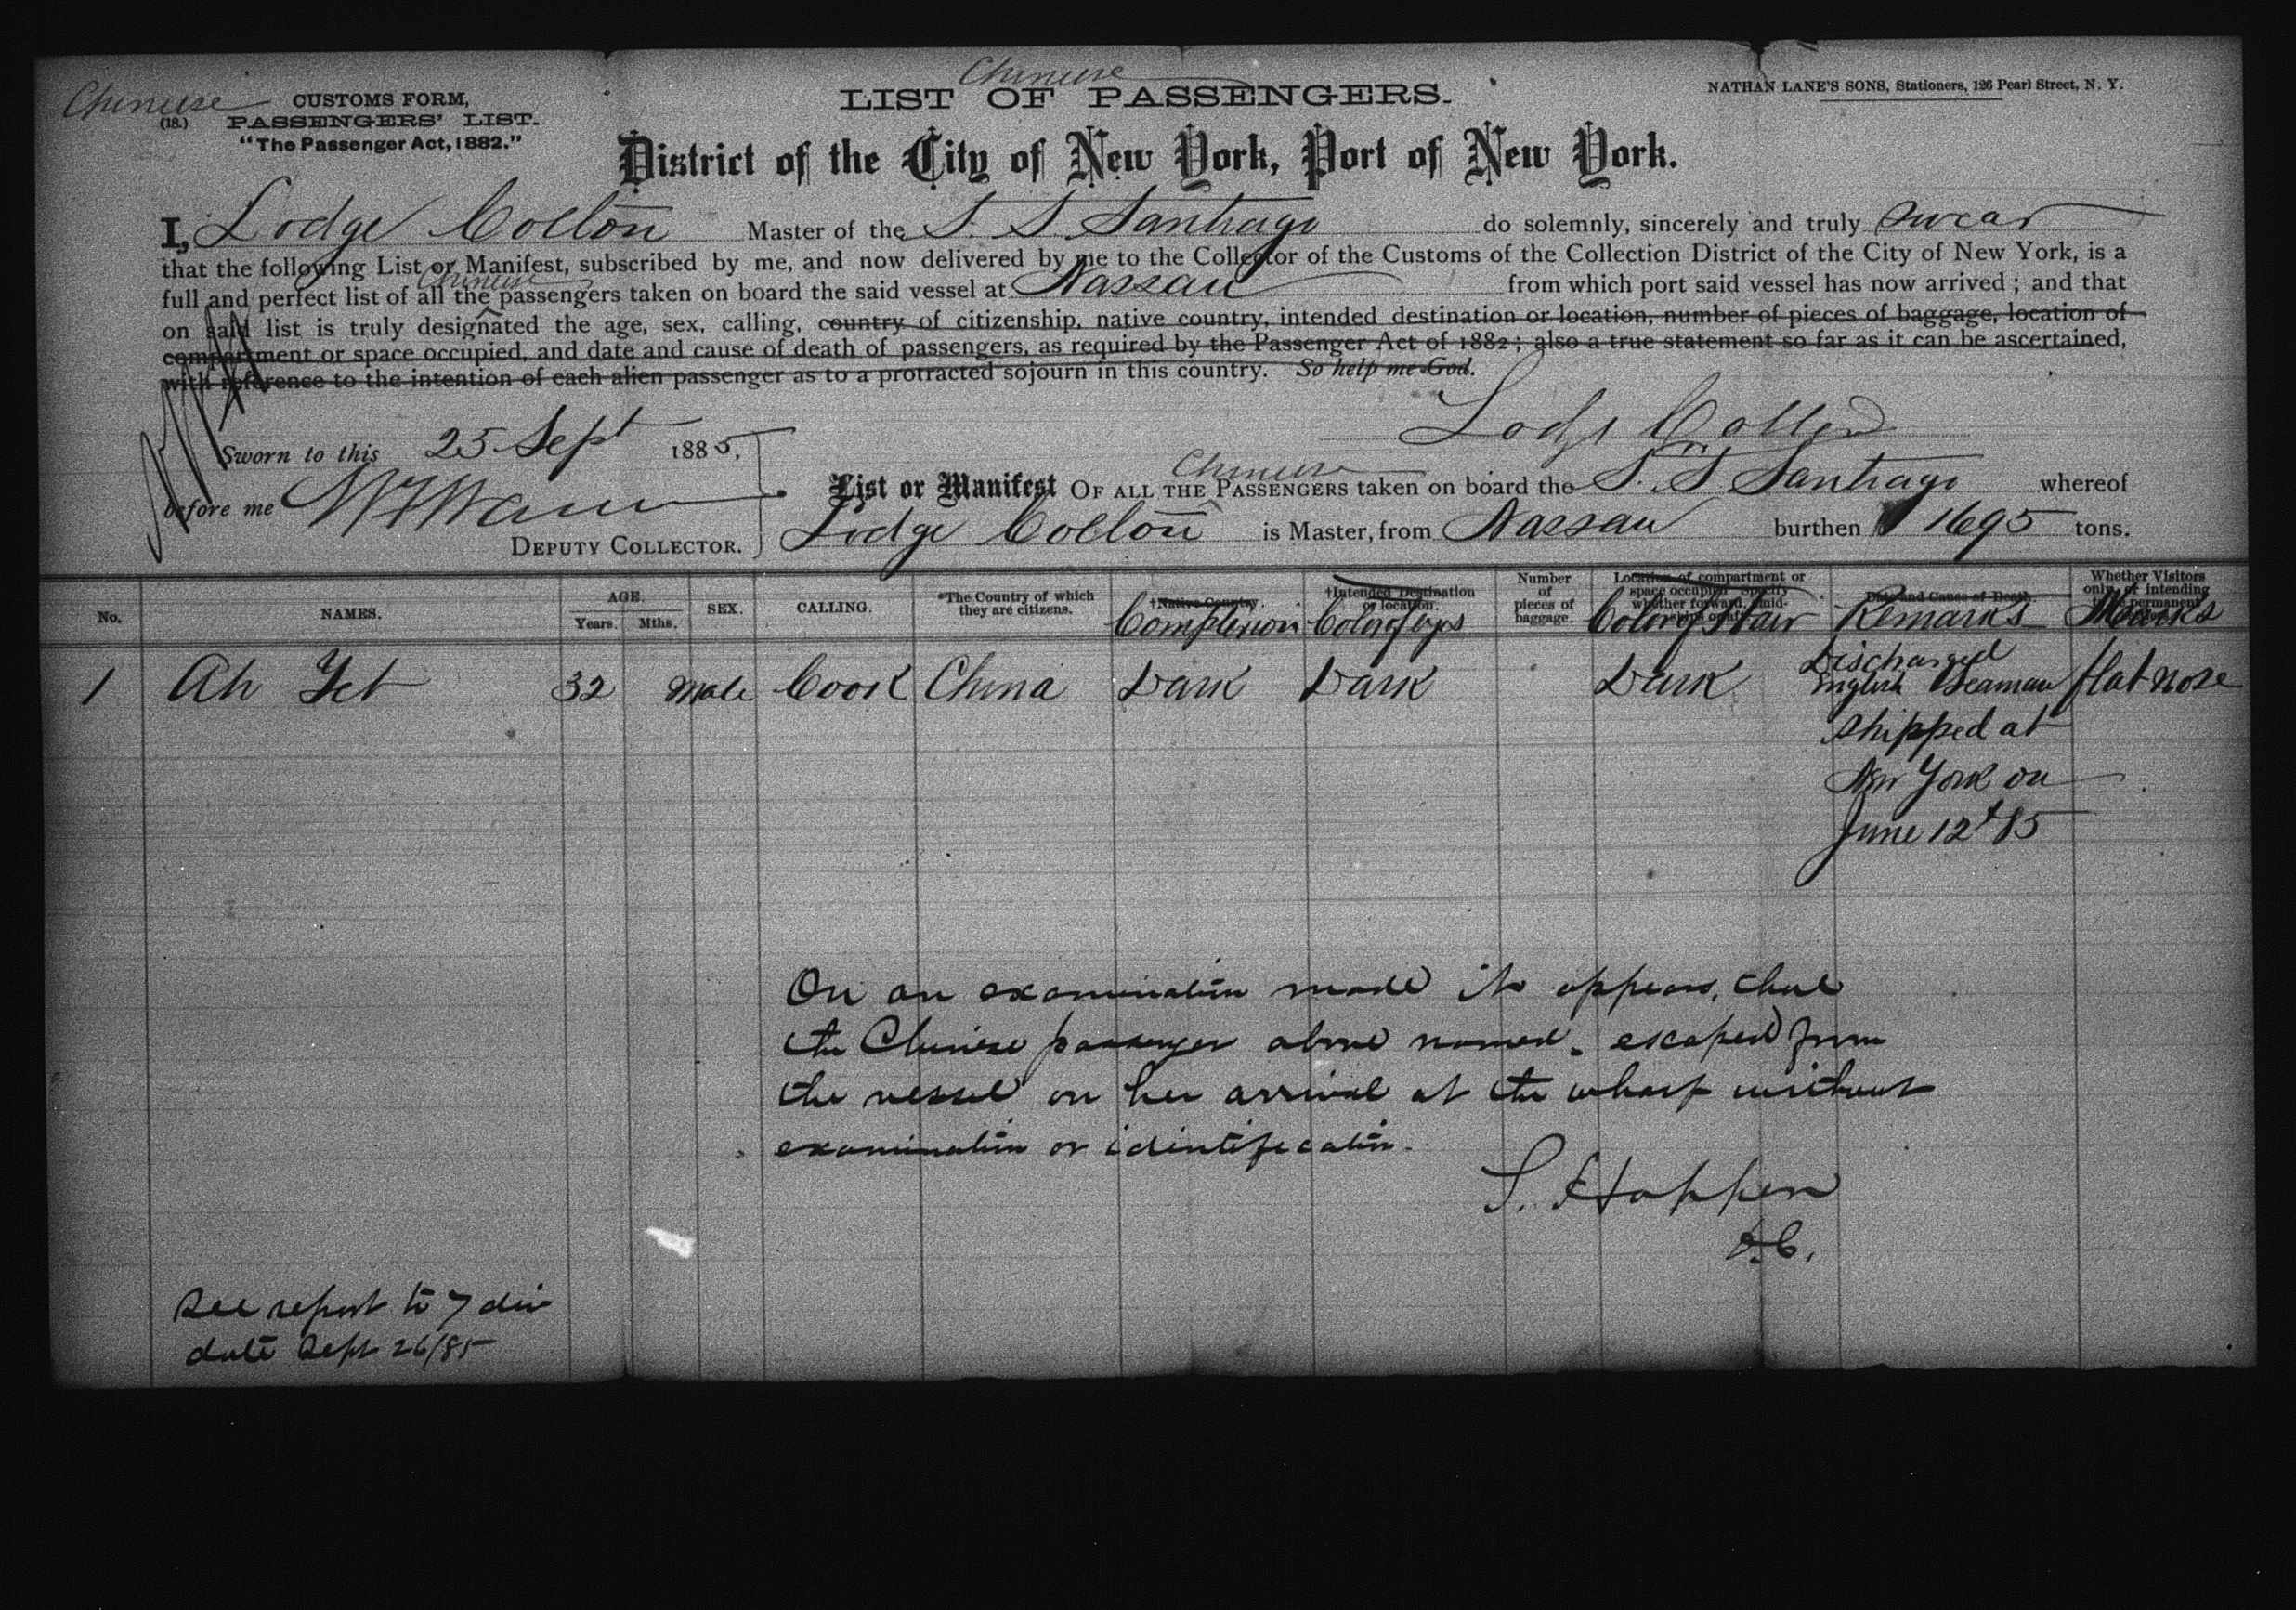 Chinese
Chinese CUSTOMS FORM,
(18.) PASSENGERS' LIST.
"The Passenger Act, 1882."
LIST OF PASSENGERS.
NATHAN LANE'S SONS, Stationers, 126 Pearl Street, N. Y.
District of the City of New York, Port of New York.
I, Lodge Colton Master of the S. S Santiago do solemnly, sincerely and truly swear
that the following List or Manifest, subscribed by me, and now delivered by me to the Collector of the Customs of the Collection District of the City of New York, is a
Chinese
full and perfect list of all the passengers taken on board the said vessel at Nassau from which port said vessel has now arrived ; and that
on said list is truly designated the age, sex, calling, country of citizenship, native country, intended destination or location, number of pieces of baggage, location of
compartment or space occupied, and date and cause of death of passengers, as required by the Passenger Act of 1882 ; also a true statement so far as it can be ascertained,
with reference to the intention of each alien passenger as to a protracted sojourn in this country. So help me God.
Lodge Colton
Sworn to this 25 Sept 1885,
before me
DEPUTY COLLECTOR.
Chinese
List or Manifest OF ALL THE PASSENGERS taken on board the S. S Santiago whereof
Lodge Colton is Master, from Nassau burthen 1695 tons.
No. NAMES. AGE. Years. Mths. SEX. CALLING. *The Country of which they are citizens. †Native Country. Complexion †Intended Destination or location. Color of Eyes Number of pieces of baggage. Location of compartment or space occupied Color of Hair Date and Cause of Death. Remarks Whether Visitors only, or intending permanent Marks
1 Ah Yet 32 Male Cook China Dark Dark Dark Discharged flat nose
English Seaman
shipped at
New York on
June 12th 85
On an examination made it appears, that
the Chinese passenger above named. escaped from
the vessel on her arrival at the wharf without
examination or identification.
S. Hoppen
D.C.
See report to 7 div
date Sept 26/85